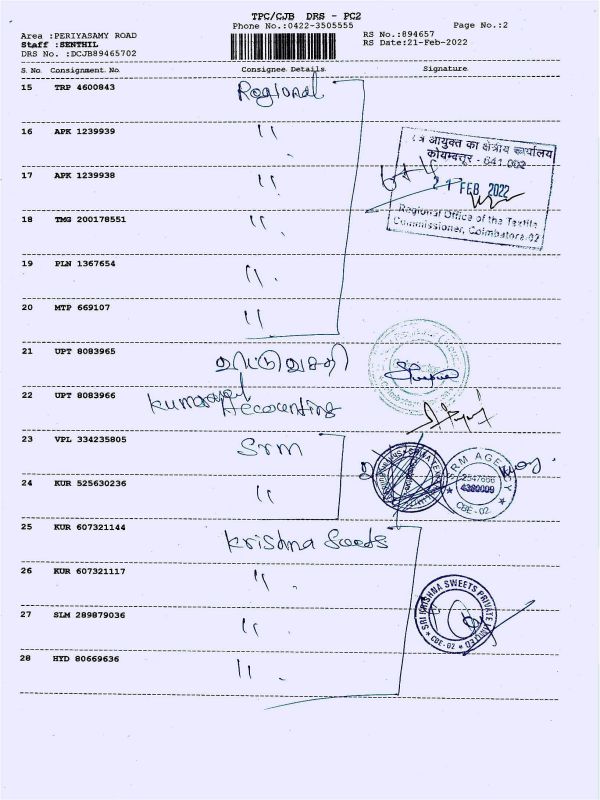 TPC/CJB DRS - PC2
Phone No.:0422-3505555
Page No.:2
Area :PERIYASAMY ROAD
Staff :SENTHIL
DRS No. :DCJB89465702
RS No.:894657
RS Date:21-Feb-2022
S.No. Consignment.No Consignee Details Signature
15 TRP 4600843 Regional
16 APK 1239939 "
17 APK 1239938 "
18 TMG 200178551 "
19 PLN 1367654 "
20 MTP 669107 "
आयुक्त का क्षेत्रीय कार्यालय
कोयम्बत्तूर - 641 002
21 FEB 2022
Regional Office of the Textile
Commissioner, Coimbatore-02
21 UPT 8083965
22 UPT 8083966 Accounting
23 VPL 334235805 Srm
24 KUR 525630236 "
SRM AGENCY
2547666
4380009
CBE - 02.
25 KUR 607321144 Krishna Sweets
26 KUR 607321117 "
27 SLM 289879036 "
28 HYD 80669636 "
SRI KRISHNA SWEETS PRIVATE LIMITED
* CBE-02 *